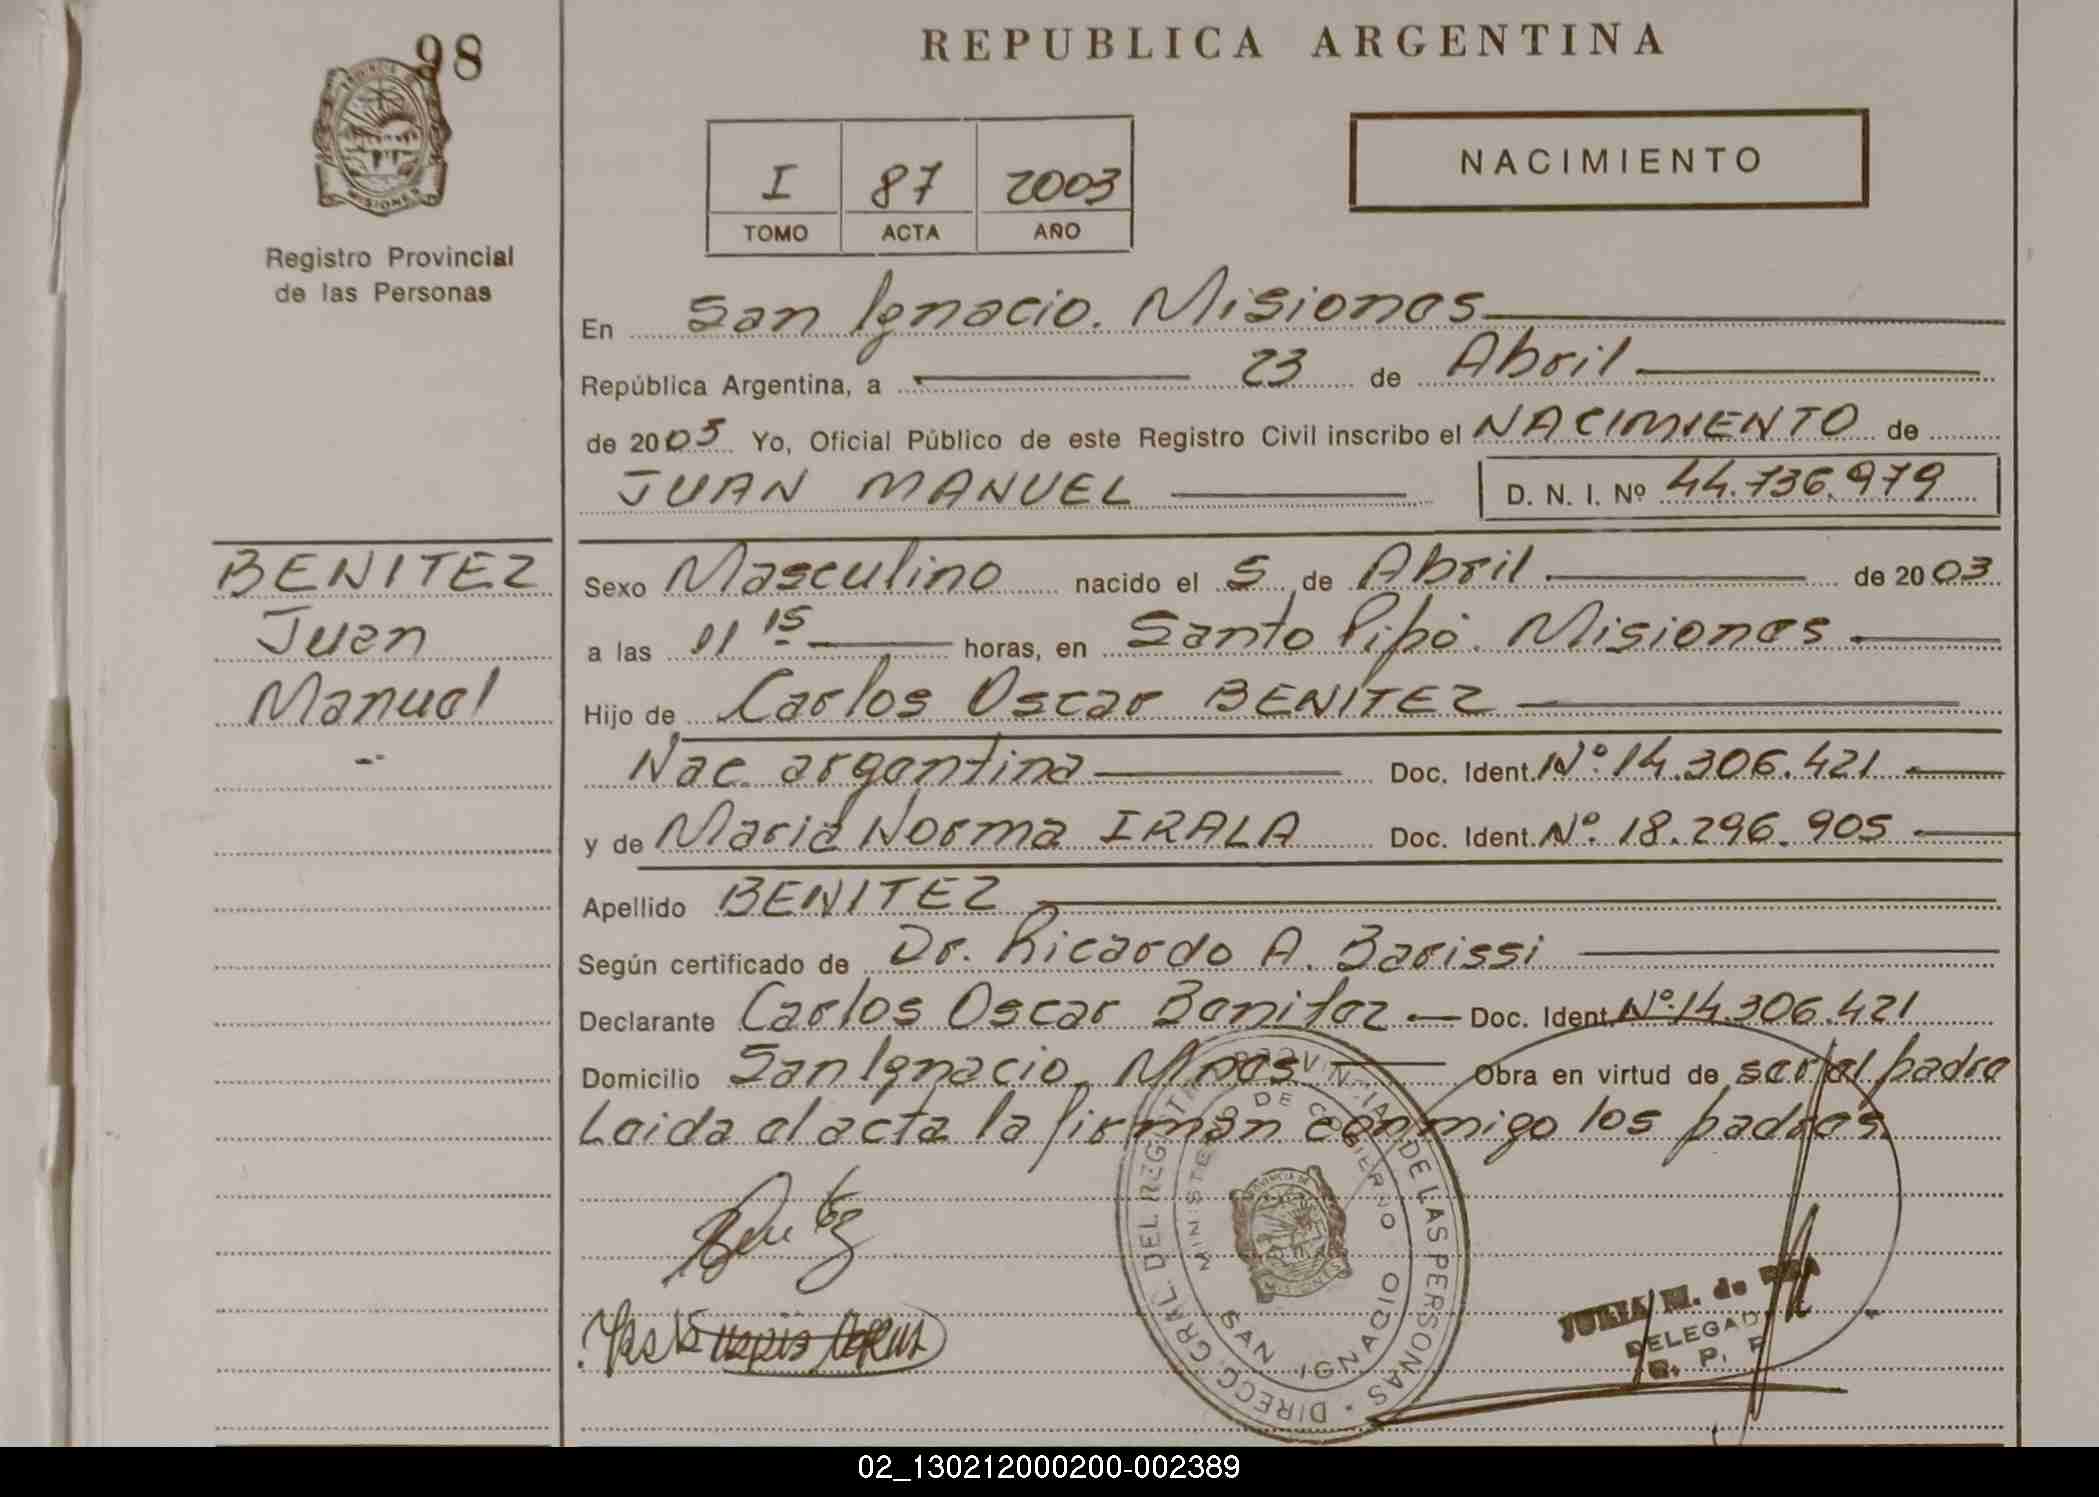 98
REPUBLICA ARGENTINA
PROVINCIA DE
MISIONES
Registro Provincial
de las Personas
I 87 2003
TOMO ACTA AÑO
NACIMIENTO
En San Ignacio. Misiones
República Argentina, a 23 de Abril
de 2003 Yo, Oficial Público de este Registro Civil inscribo el NACIMIENTO de
JUAN MANUEL D. N. I. Nº 44.736.979
BENITEZ
Juan
Manuel
Sexo Masculino nacido el 5 de Abril de 2003
a las 11 15 horas, en Santo Pipó. Misiones
Hijo de Carlos Oscar BENITEZ
Nac. argentina Doc. Ident. Nº 14.306.421
y de Maria Norma IRALA Doc. Ident. Nº. 18.296.905
Apellido BENITEZ
Según certificado de Dr. Ricardo A. Barissi
Declarante Carlos Oscar Benitez Doc. Ident. Nº.14.306.421
Domicilio San Ignacio, Mnes Obra en virtud de ser el padre
Leida el acta la firman conmigo los padres.
DIRECC. GRAL. DEL REGISTRO PROVINCIAL DE LAS PERSONAS
MINISTERIO DE GOBIERNO
SAN IGNACIO
JULIA M. de
DELEGADA
R. P. P.
02_130212000200-002389